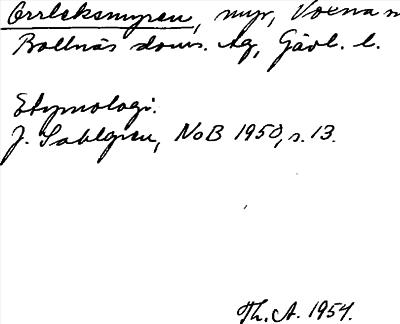 Orrleksmyren, myr, Voxna s
Bollnäs doms. tg, Gävl. l.
Etymologi:
J. Sahlgren, NoB 1950, s. 13.
Th. A. 1954.